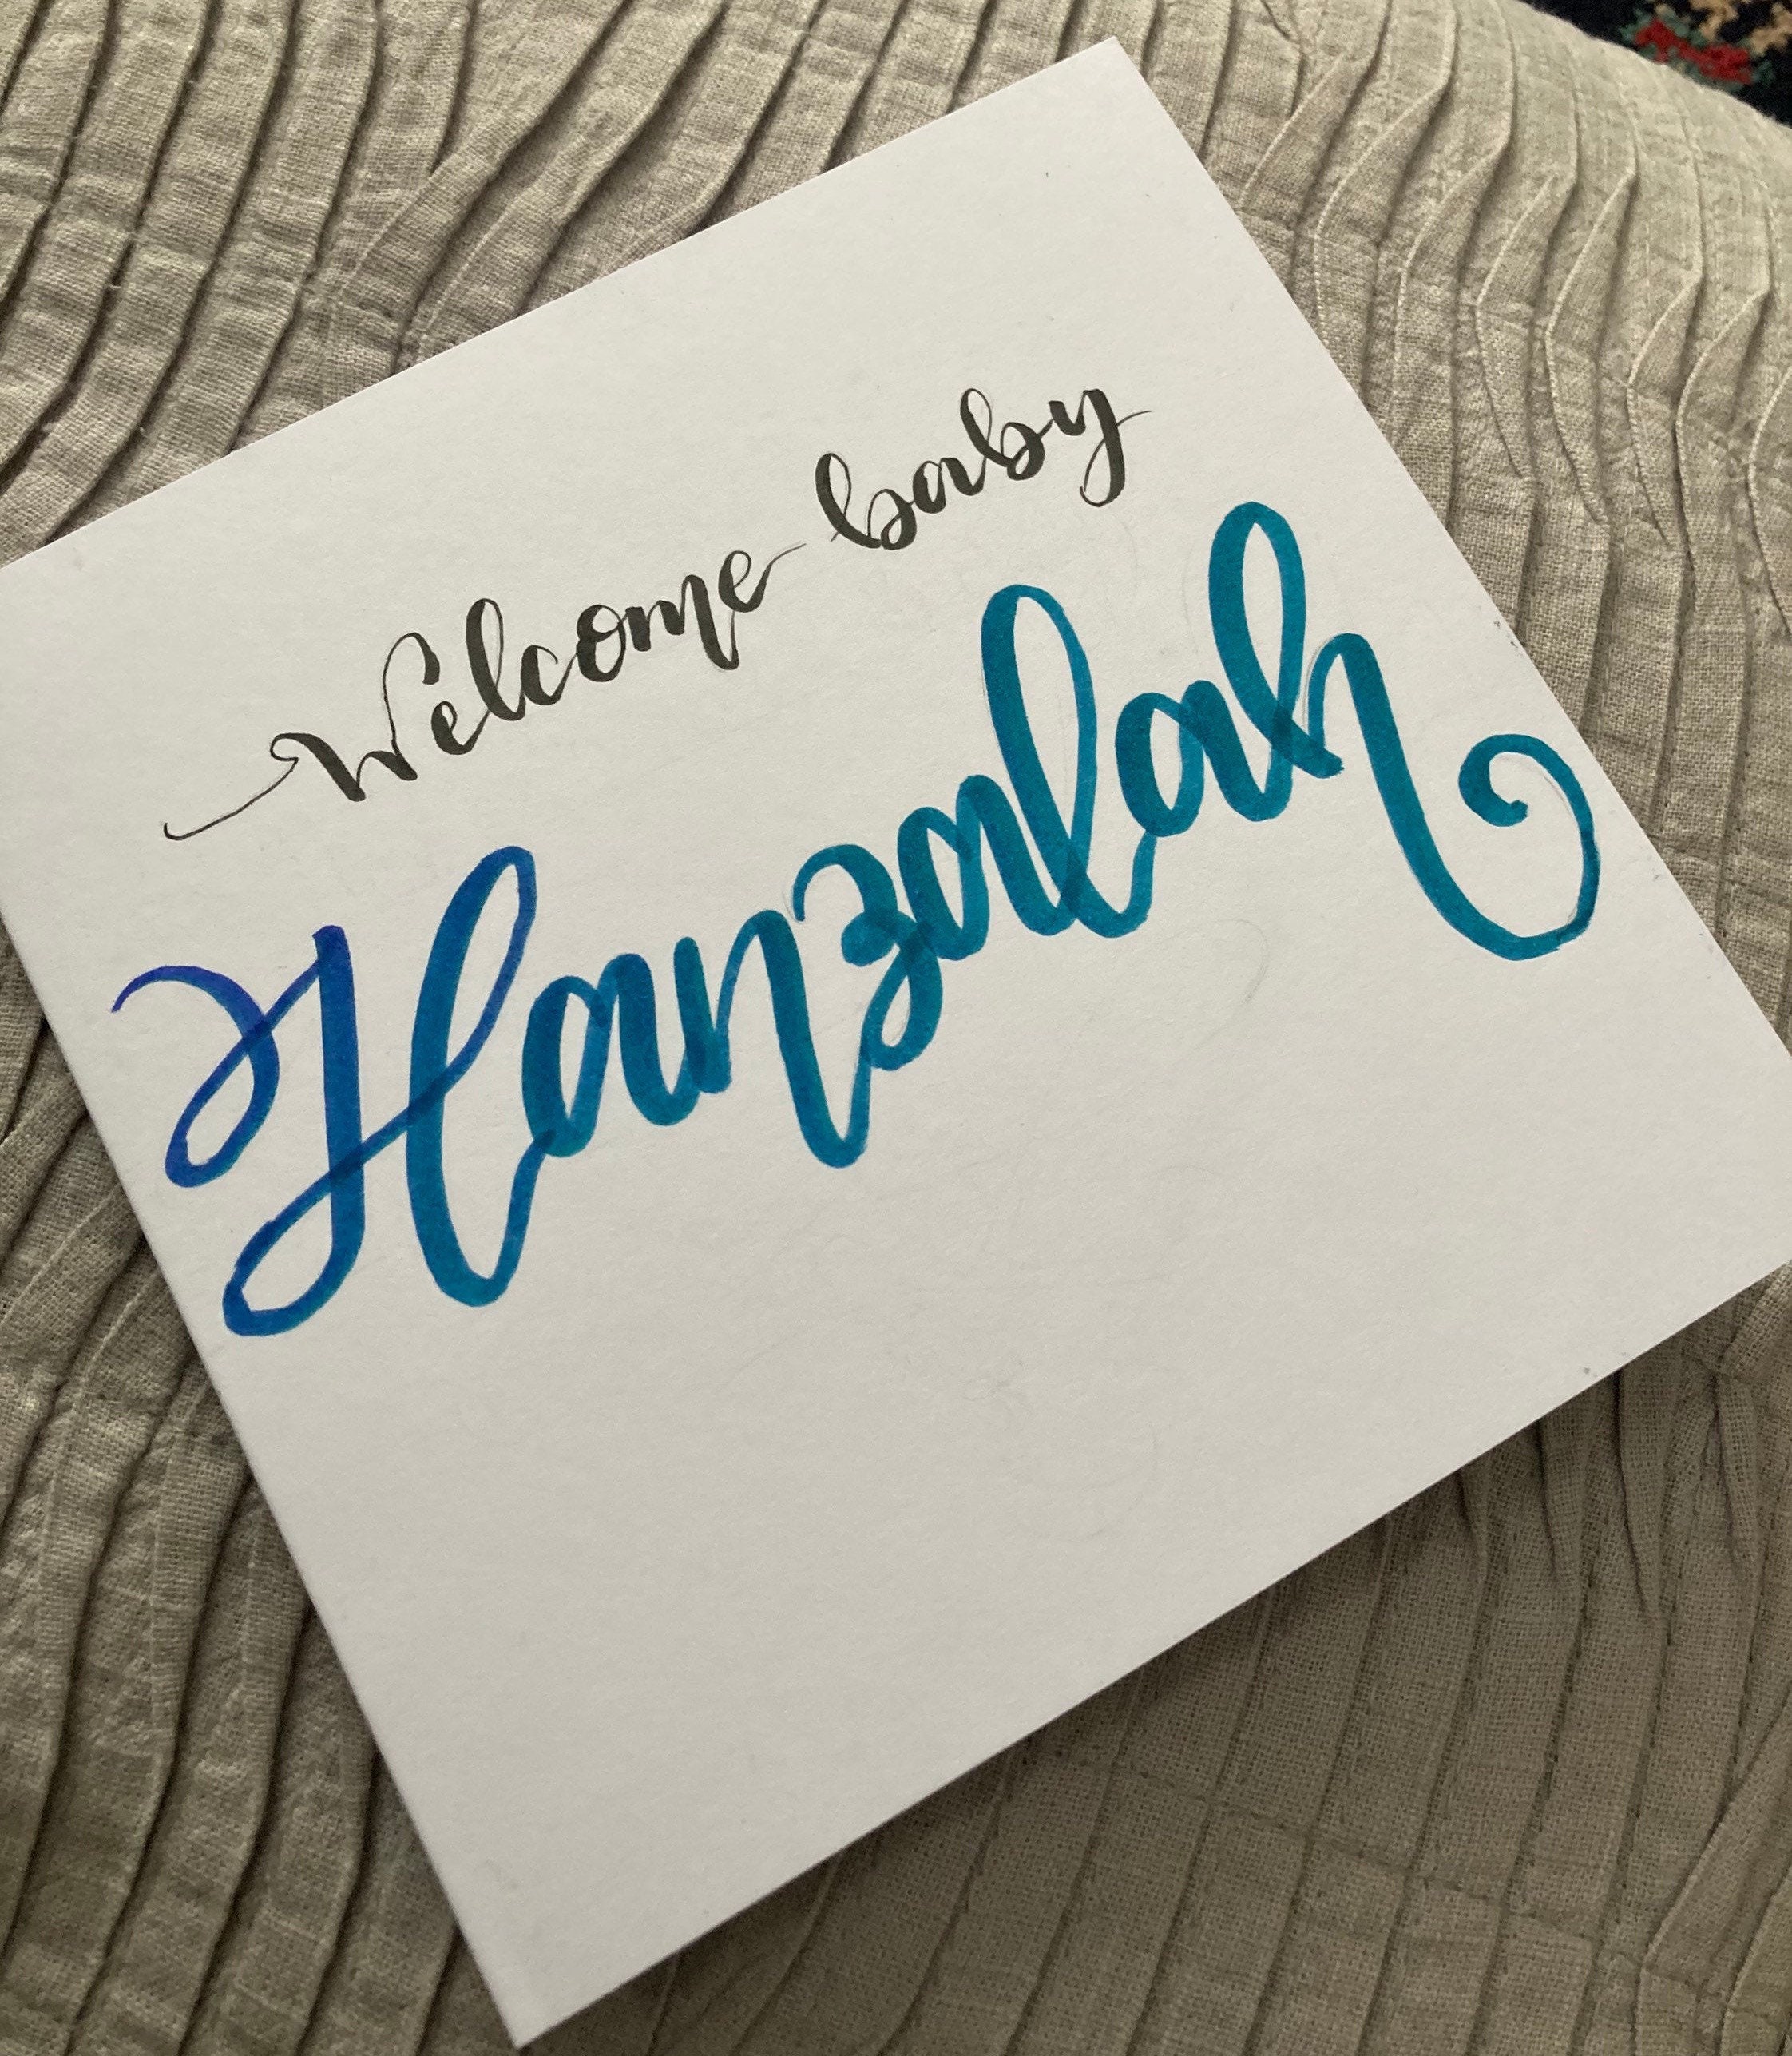 Welcome baby
Hanzalah